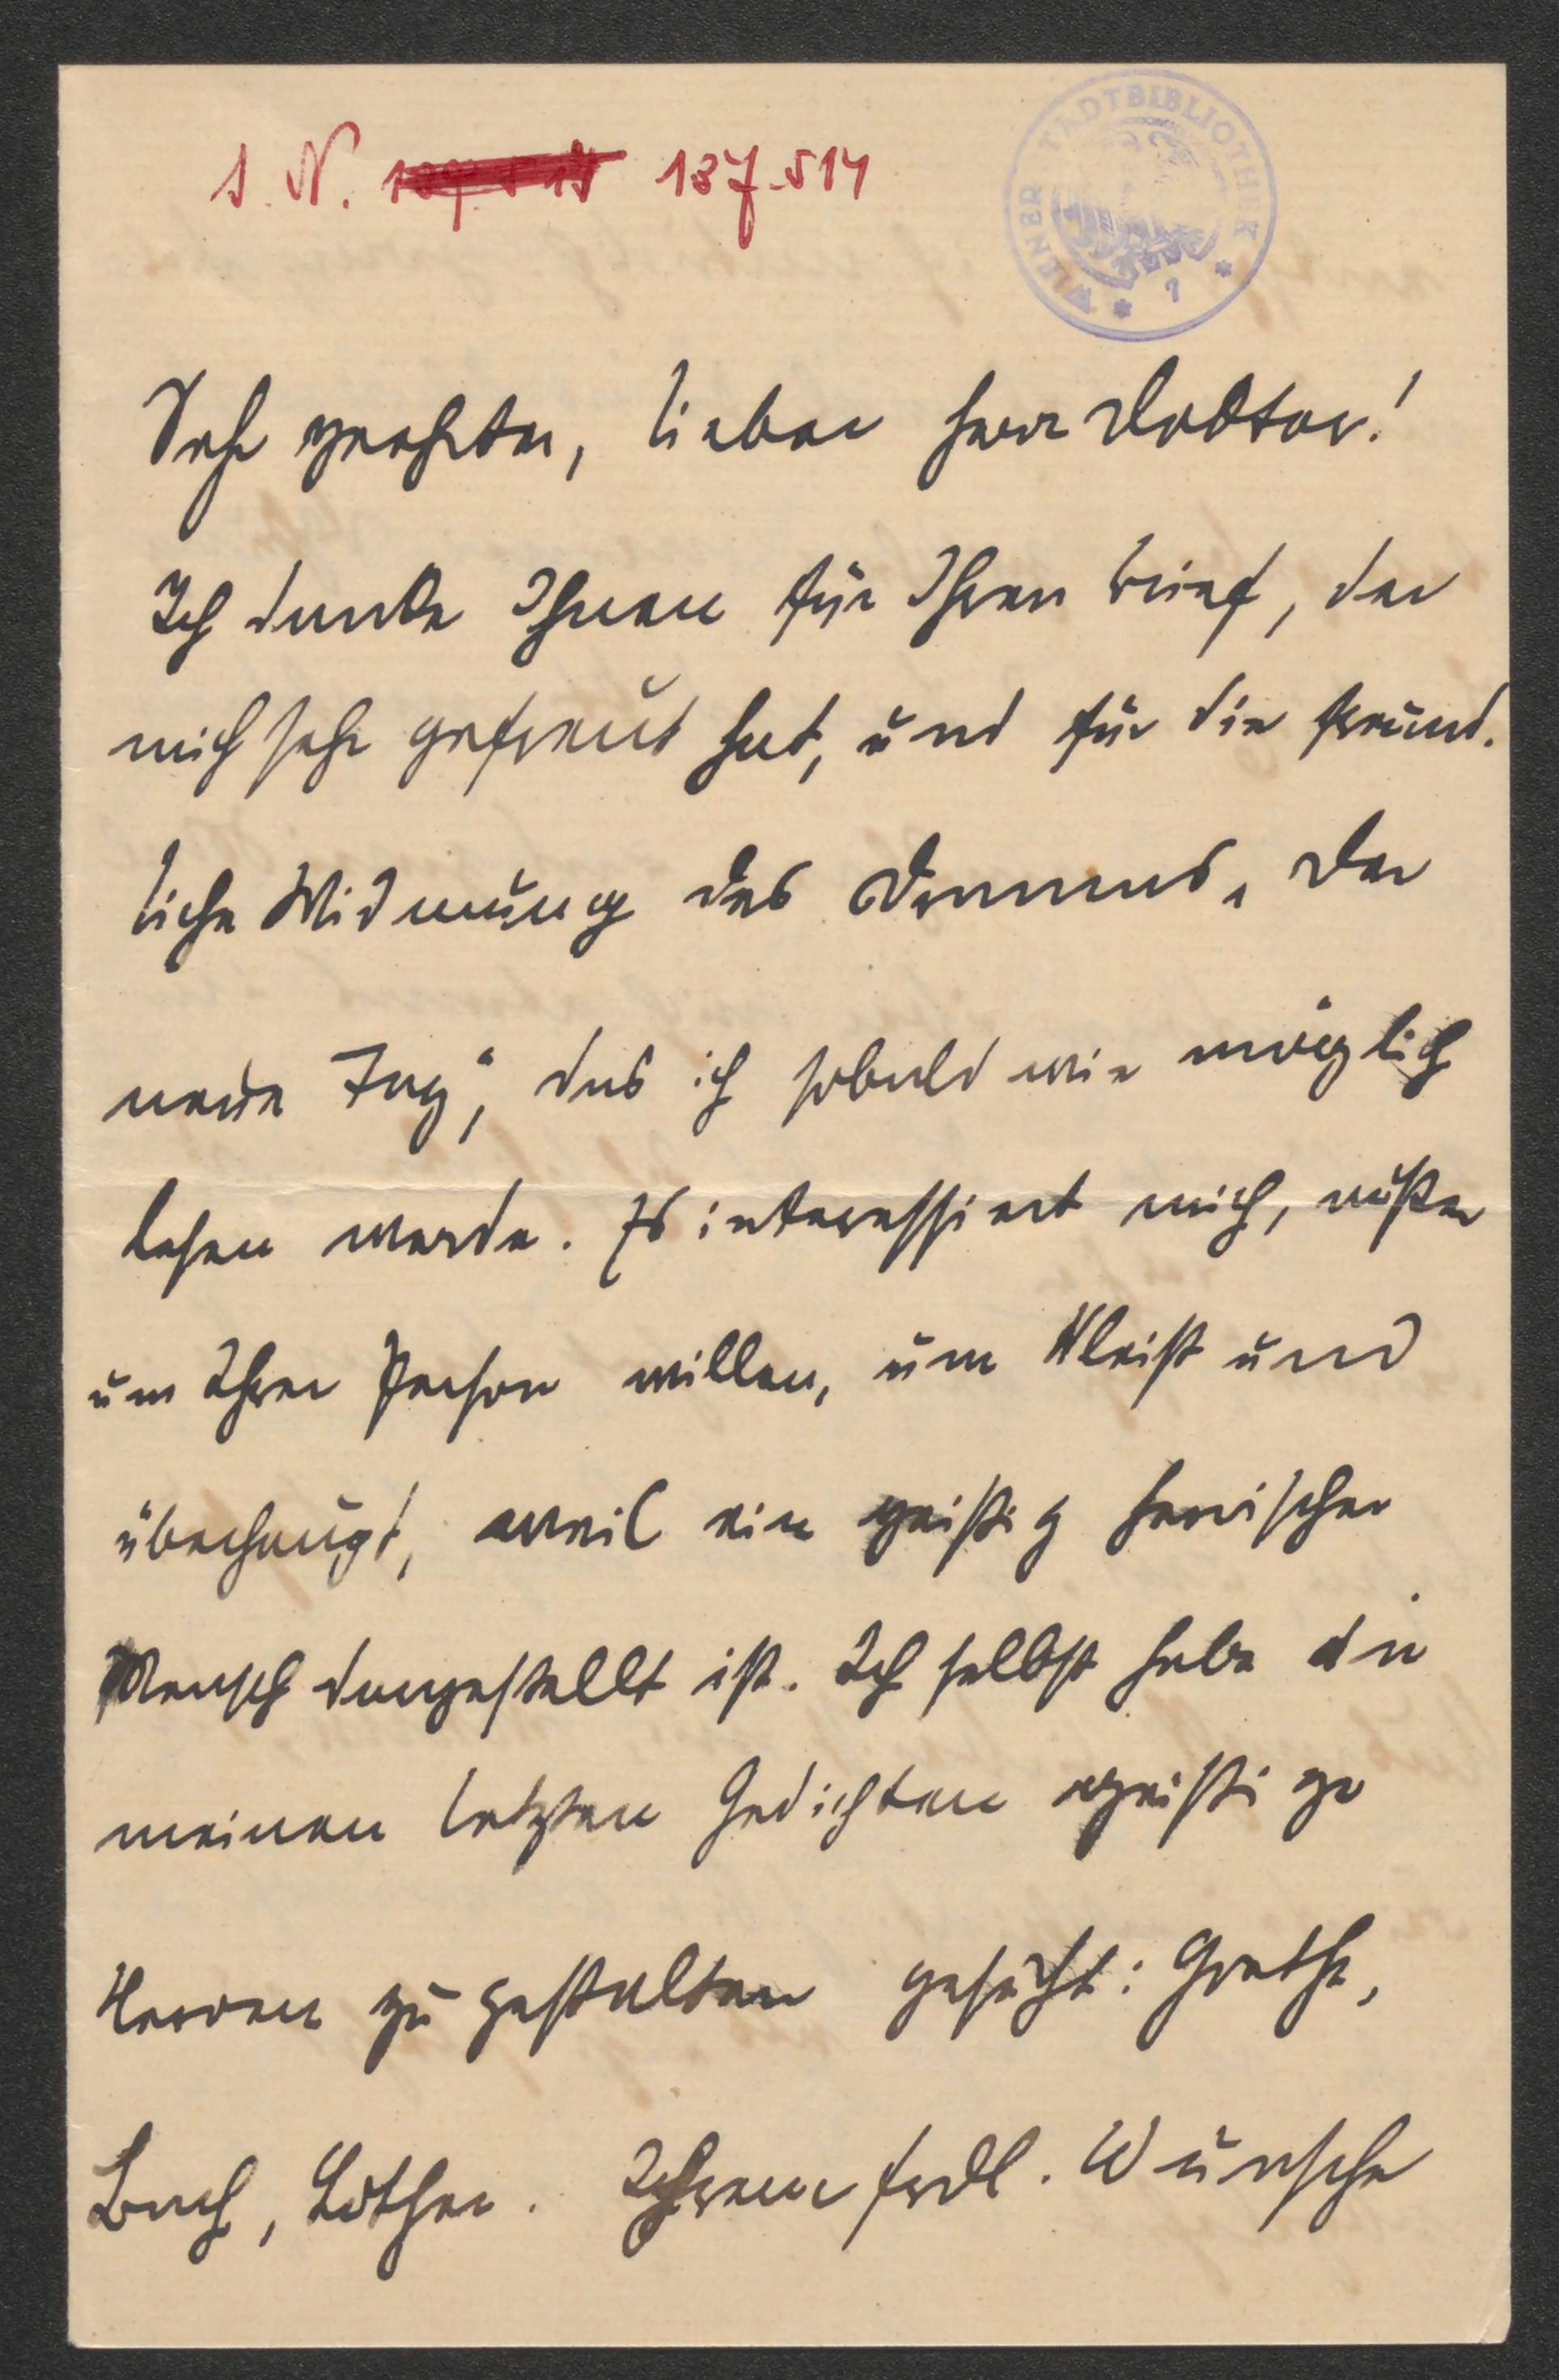 I. N. 137.514
WIENER STADTBIBLIOTHEK
Sehr geehrter, lieber Herr Doktor!
Ich danke Ihnen für Ihren Brief, der
mich sehr gefreut hat, und für die freund-
liche Widmung des Dramas „Der
neue Tag“, das ich sobald wie möglich
lesen werde. Es interessiert mich, außer
um Ihrer Person willen, um Kleist und
überhaupt, weil ein geistig heroischer
Mensch dargestellt ist. Ich selbst habe in
meinen letzten Gedichten geistige
Heroen zu gestalten gesucht: Goethe,
Bach, Luther. Ihrem frdl. Wunsche